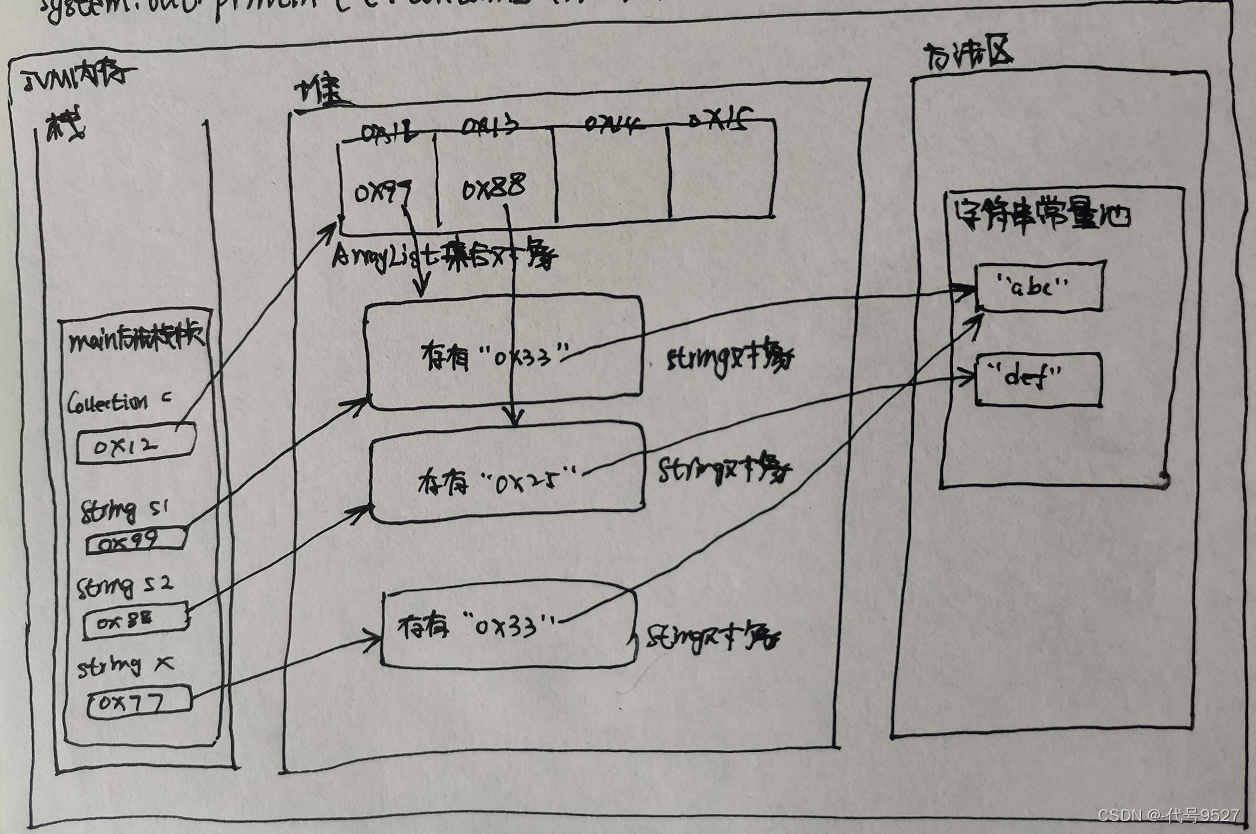 System.out.println(c.contains(
JVM内存
栈
堆
方法区
0x12 0x13 0x14 0x15
0x97 0x88
ArrayList集合对象
字符串常量池
"abc"
"def"
main方法栈帧
Collection c
0x12
String s1
0x99
String s2
0x88
String x
0x77
存有 "0x33"
String对象
存有 "0x25"
String对象
存有 "0x33"
String对象
CSDN @-代号9527